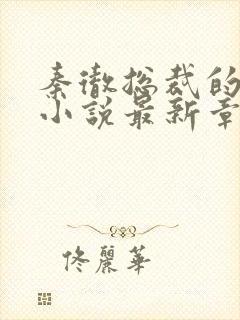 秦徹总裁的
小説最新章
佟麗華